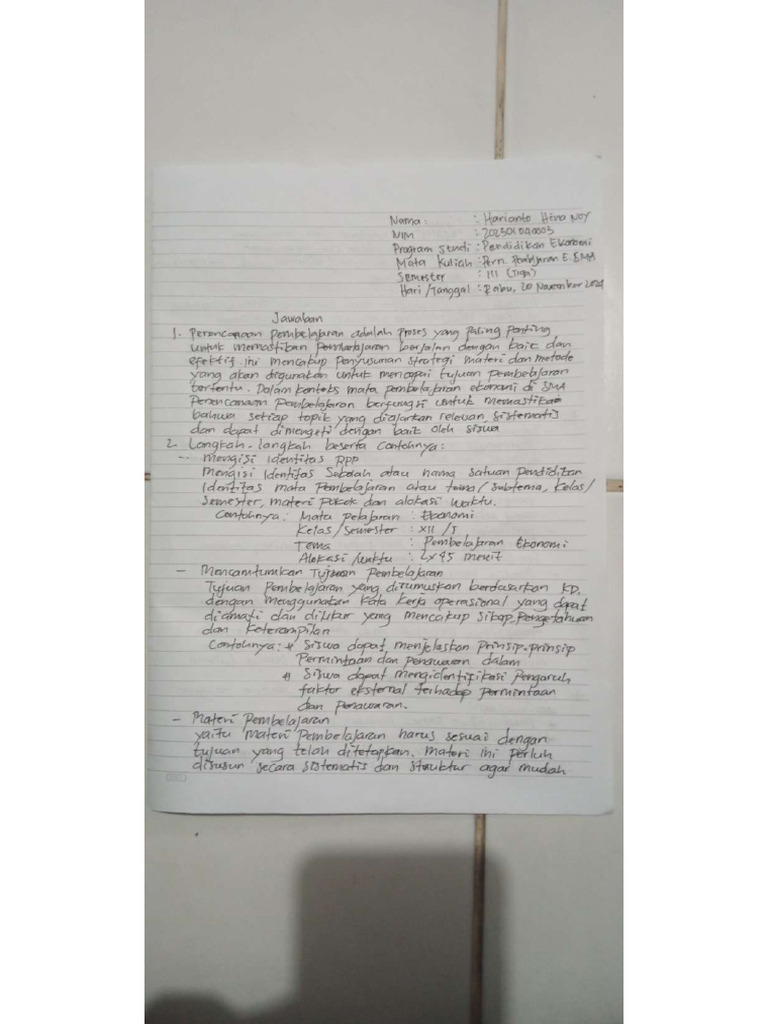 Nama : Harianto Hina Noy
NIM : 202301040003
Program Studi : Pendidikan Ekonomi
Mata Kuliah : Pern. Pembljaran E. SMA
Semester : III (Tiga)
Hari /Tanggal : Rabu, 20 November 2024
Jawaban
1. Perencanaan Pembelajaran adalah proses yang paling Penting
untuk memastikan Pembelajaran berjalan dengan baik dan
efektif. ini mencakup penyusunan strategi materi dan metode
yang akan digunakan untuk mencapai tujuan pembelajaran
tertentu. Dalam konteks mata pembelajaran ekonomi di SMA
Perencanaan Pembelajaran berfungsi untuk memastikan
bahwa setiap topik yang diajarkan relevan, sistematis
dan dapat dimengeti dengan baik oleh siswa
2. Langkah-langkah beserta Contohnya:
- Mengisi Identitas RPP
Mengisi Identitas Sekolah atau nama satuan pendidikan
Identitas mata Pembelajaran atau tema/subtema, Kelas/
Semester, materi Pokok dan alokasi waktu.
Contohnya: Mata pelajaran : Ekonomi
Kelas/Semester : XII /I
Tema : Pembelajaran Ekonomi
Alokasi/waktu : 2x45 menit
- Mencamtumkan Tujuan Pembelajaran
Tujuan Pembelajaran yang dirumuskan berdasarkan KD,
dengan menggunakan Kata Kerja operasional yang dapat
diamati dan diukur yang mencakup sikap, Pengetahuan
dan Keterampilan
Contohnya: * Siswa dapat menjelaskan Prinsip-prinsip
Permintaan dan penawaran dalam
* Siswa dapat mengidentifikasi Pengaruh
faktor eksternal terhadap permintaan
dan Penawaran.
- Materi Pembelajaran
yaitu Materi Pembelajaran harus sesuai dengan
tujuan yang telah ditetapkan. Materi ini perluh
disusun secara sistematis dan struktur agar mudah